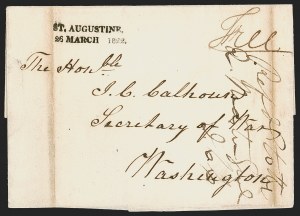 ST. AUGUSTINE,
26 MARCH 1822.
Free
The Honble
J. C. Calhoun
Secretary of War
Washington